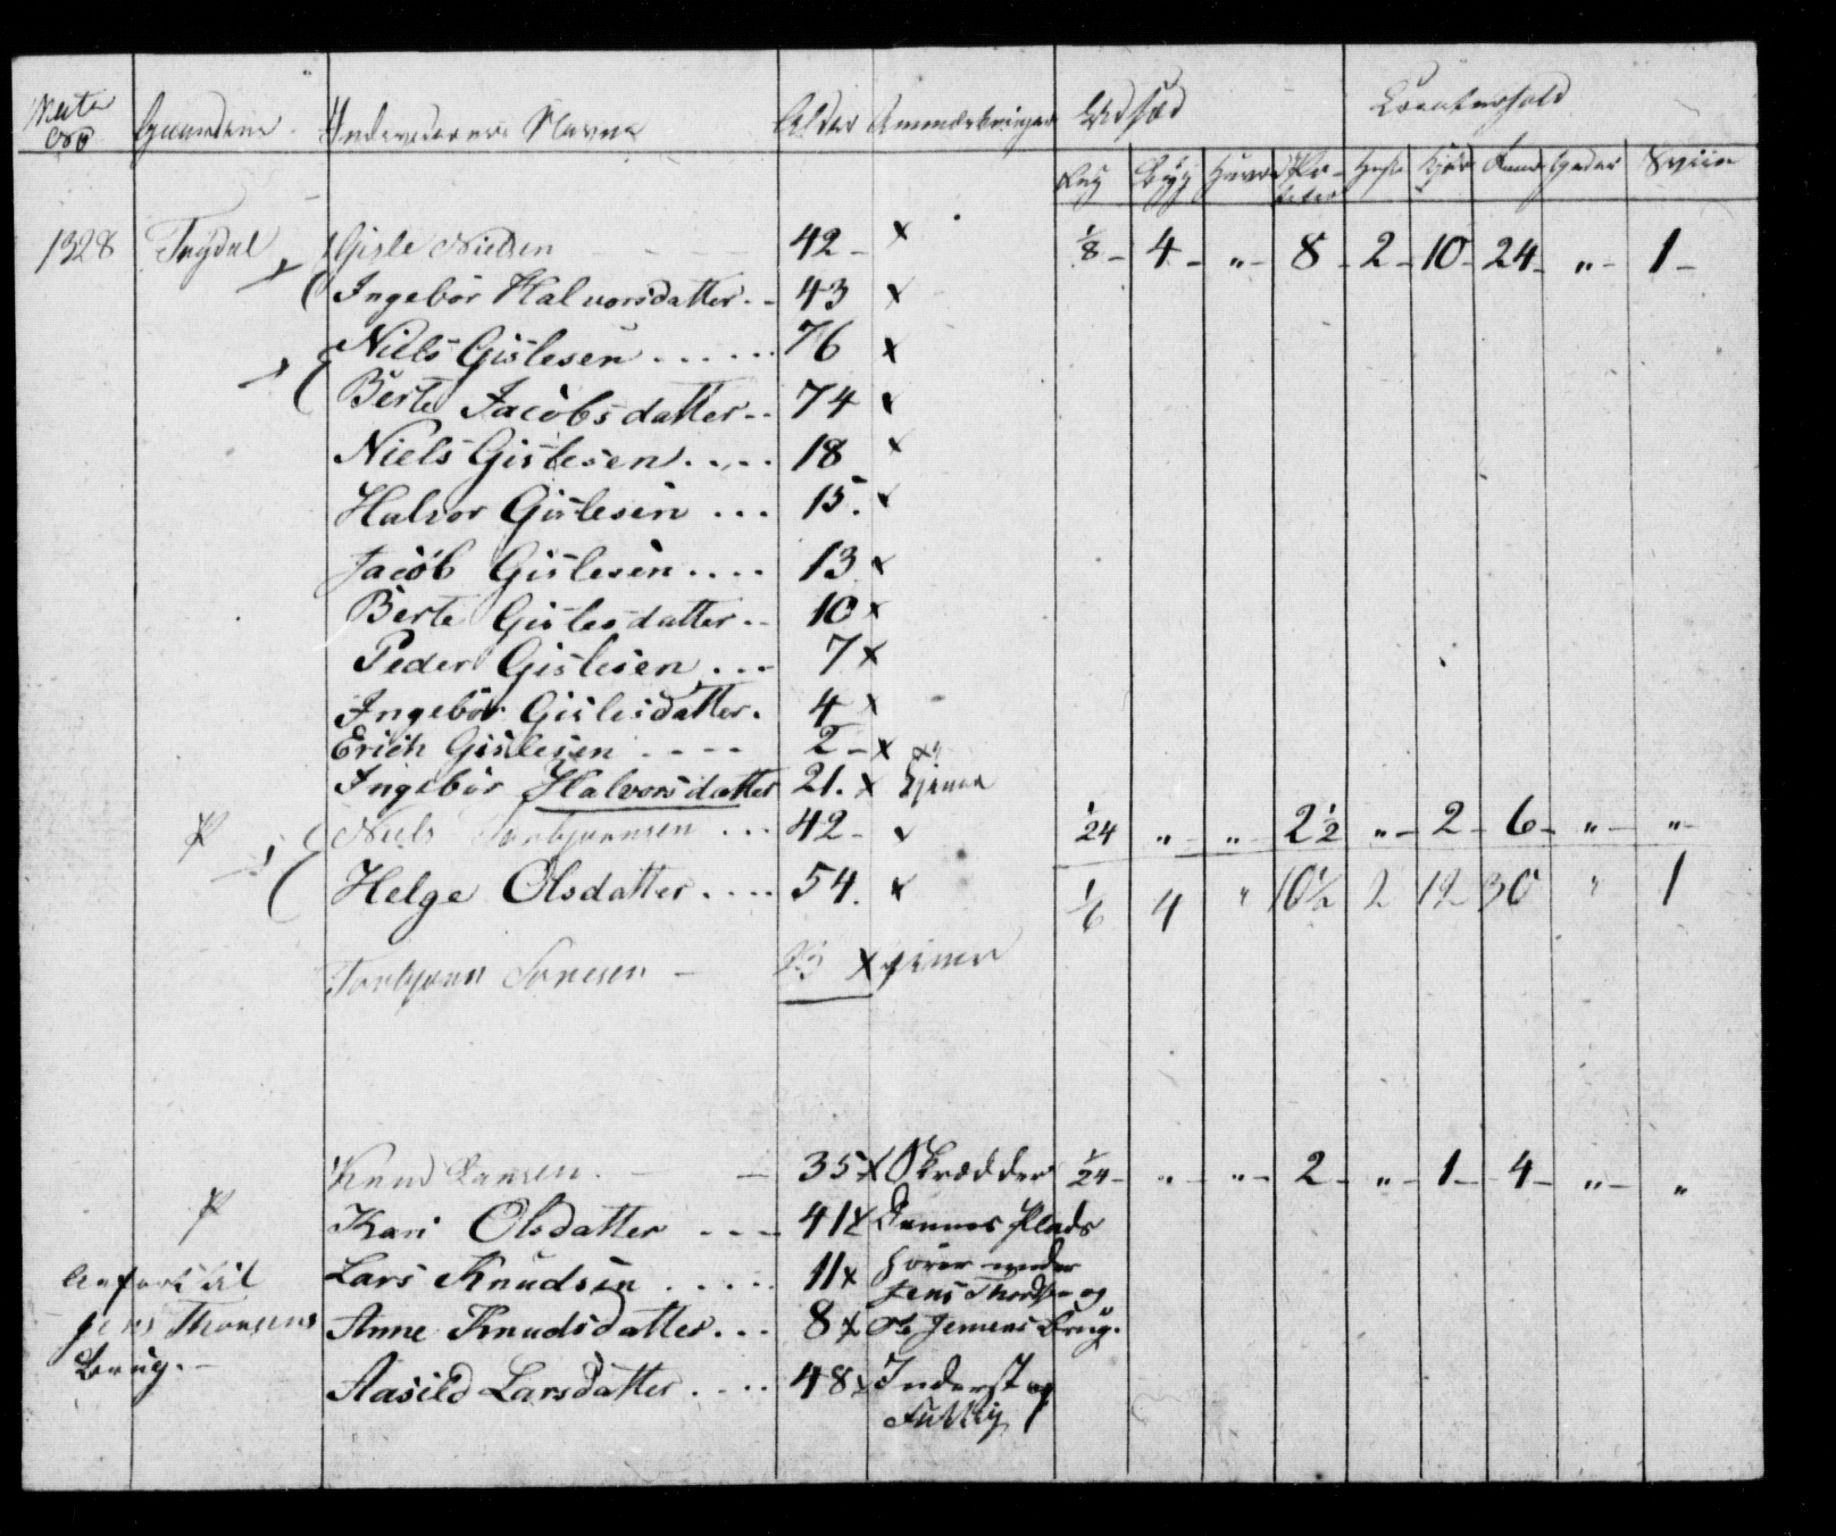 No Gaardene Indevaanernes Navne Alder Anmærkninger Udsæd Creaturhold
Rug Byg Havre Po-teter Heste Kjør Geder Sviin
1328 Gisle Nielsen 42 - x 1/8 - 4 - " - 8 - 2 - 10 - 24 - " - 1 -
Ingebor Halvorsdatter - - 43 x
Niels Gislesen . . . . . . 76 x
Berte Jacobsdatter - - 74 x
Niels Gislesen . . . . 18 x
Halvor Gislesen . . . 15. x
Jacob Gislesen . . . . 13 x
Berte Gislesdatter . . 10 x
Peder Gislesen . . . 7 x
Ingebor Gislesdatter . 4 x
Erich Gislesen - - - - 2 - x
Ingebor Halvorsdatter 21. x tjener
Niels Torbjørnsen . . . 42 - x 1/24 " - " - 2 1/2 " - 2 - 6 - " - " -
Helge Olsdatter . . . . 54. x 1/6 4 " 10 1/2 2 12 30 " 1
Torbjørn - x
Knud Larsen. - - 35 x Skrædder 1/24 - " - " - 2 - " - 1 - 4 - " - "
Kari Olsdatter - - - 41 x Dennes Plads
Anført til Lars Knudsen . . . . . 11 x hører under
Jens Thorsens Anne Knudsdatter . . . 8 x Jens og
Brug. - Jensens Brug.
Aasild Larsdatter . . . . 48 x Inderst og
Fattig